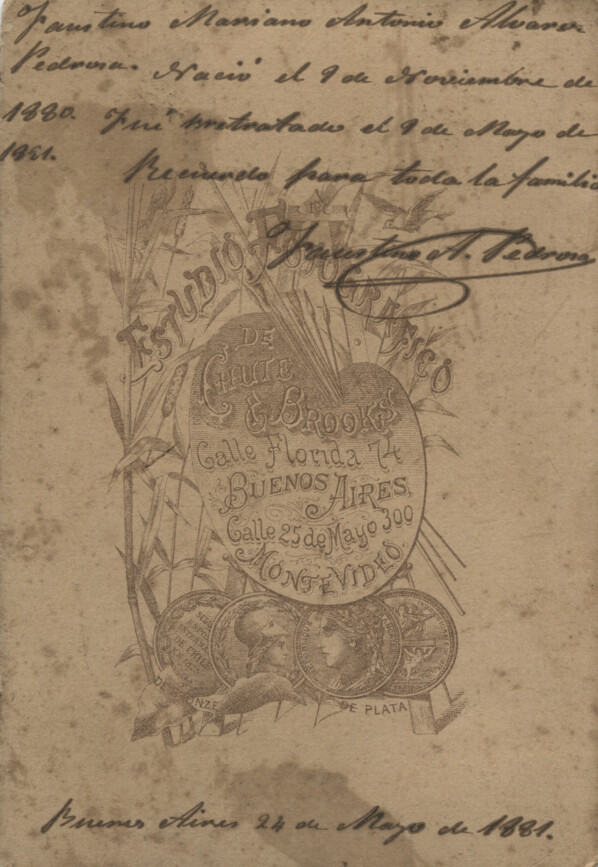 Faustino Mariano Antonio Alvarez
Pedrosa. Nació el 9 de Noviembre de
1880. Fué retratado el 9 de Mayo de
1881.
Recuerdo para toda la familia
Faustino A. Pedrosa
ESTUDIO FOTOGRAFICO
DE
CHUTE
& BROOKS
Calle Florida 74
BUENOS AIRES,
Calle 25 de Mayo 300
MONTEVIDEO.
DE CHILE
DE PLATA
Buenos Aires 24 de Mayo de 1881.